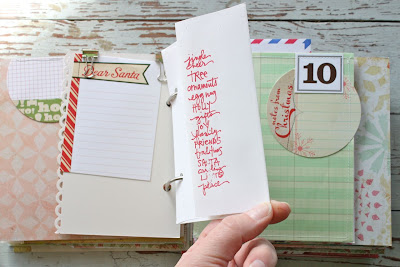 Dear Santa
jingle
cheer
TREE
ornaments
eggnog
Holly
gifts
JOY
family
FRIENDS
traditions
SANTA
caroling
peace
10
from
Christmas